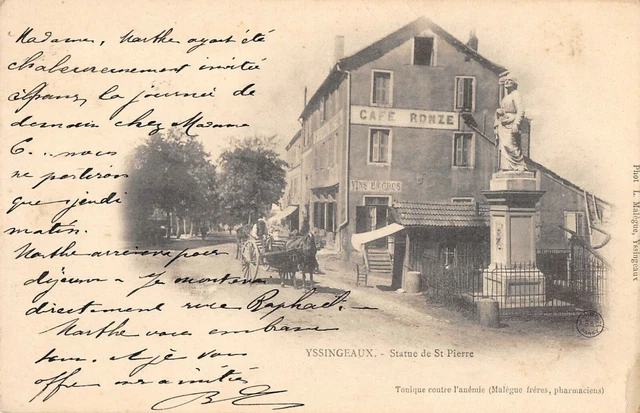 Madame, Marthe ayant été
chaleureusement invitée
passer la journée de
demain chez Madame
C... nous
ne partirons
que jeudi
matin.
Marthe arrivera pour
déjeuner - Je monterai
directement rue Raphaël -
Marthe vous embrasse
tous. Et je vous
offre mes amitiés
CAFÉ RONZE
VINS EN GROS
YSSINGEAUX. - Statue de St Pierre
Tonique contre l'anémie (Malègue frères, pharmaciens)
Phot. Malègue, Yssingeaux